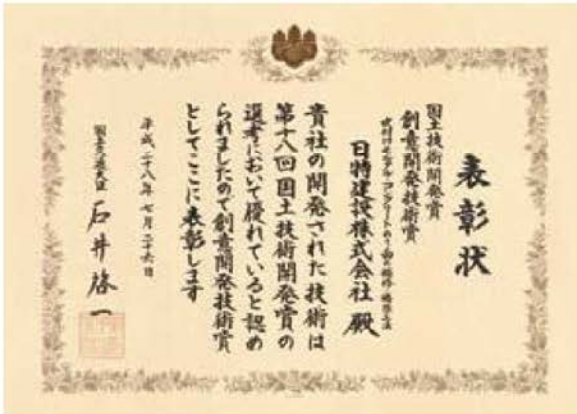 表彰状
国土技術開発賞
創意開発技術賞
日特建設株式会社 殿
貴社の開発された技術は
第十八回国土技術開発賞の
選考において優れていると認め
られましたので創意開発技術賞
としてここに表彰します
平成二十八年七月二十六日
国土交通大臣 石井啓一